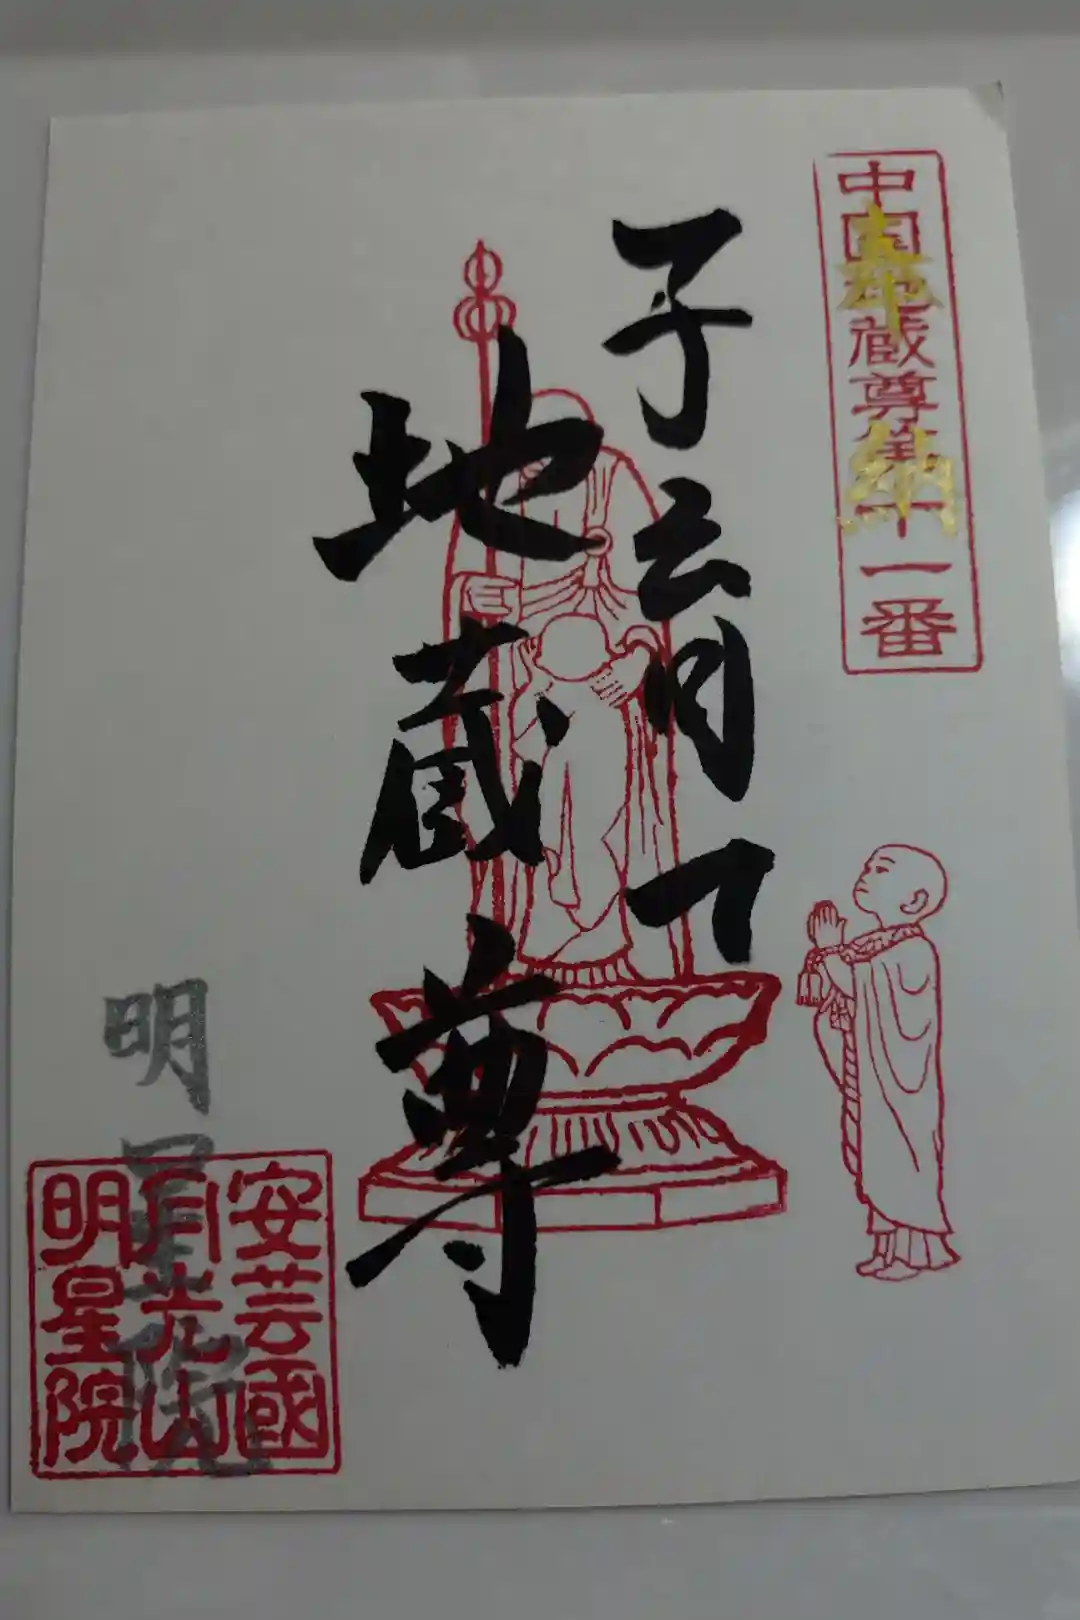 中国地蔵尊第十一番
子育て
地蔵尊
明星院
安芸國
月光山
明星院